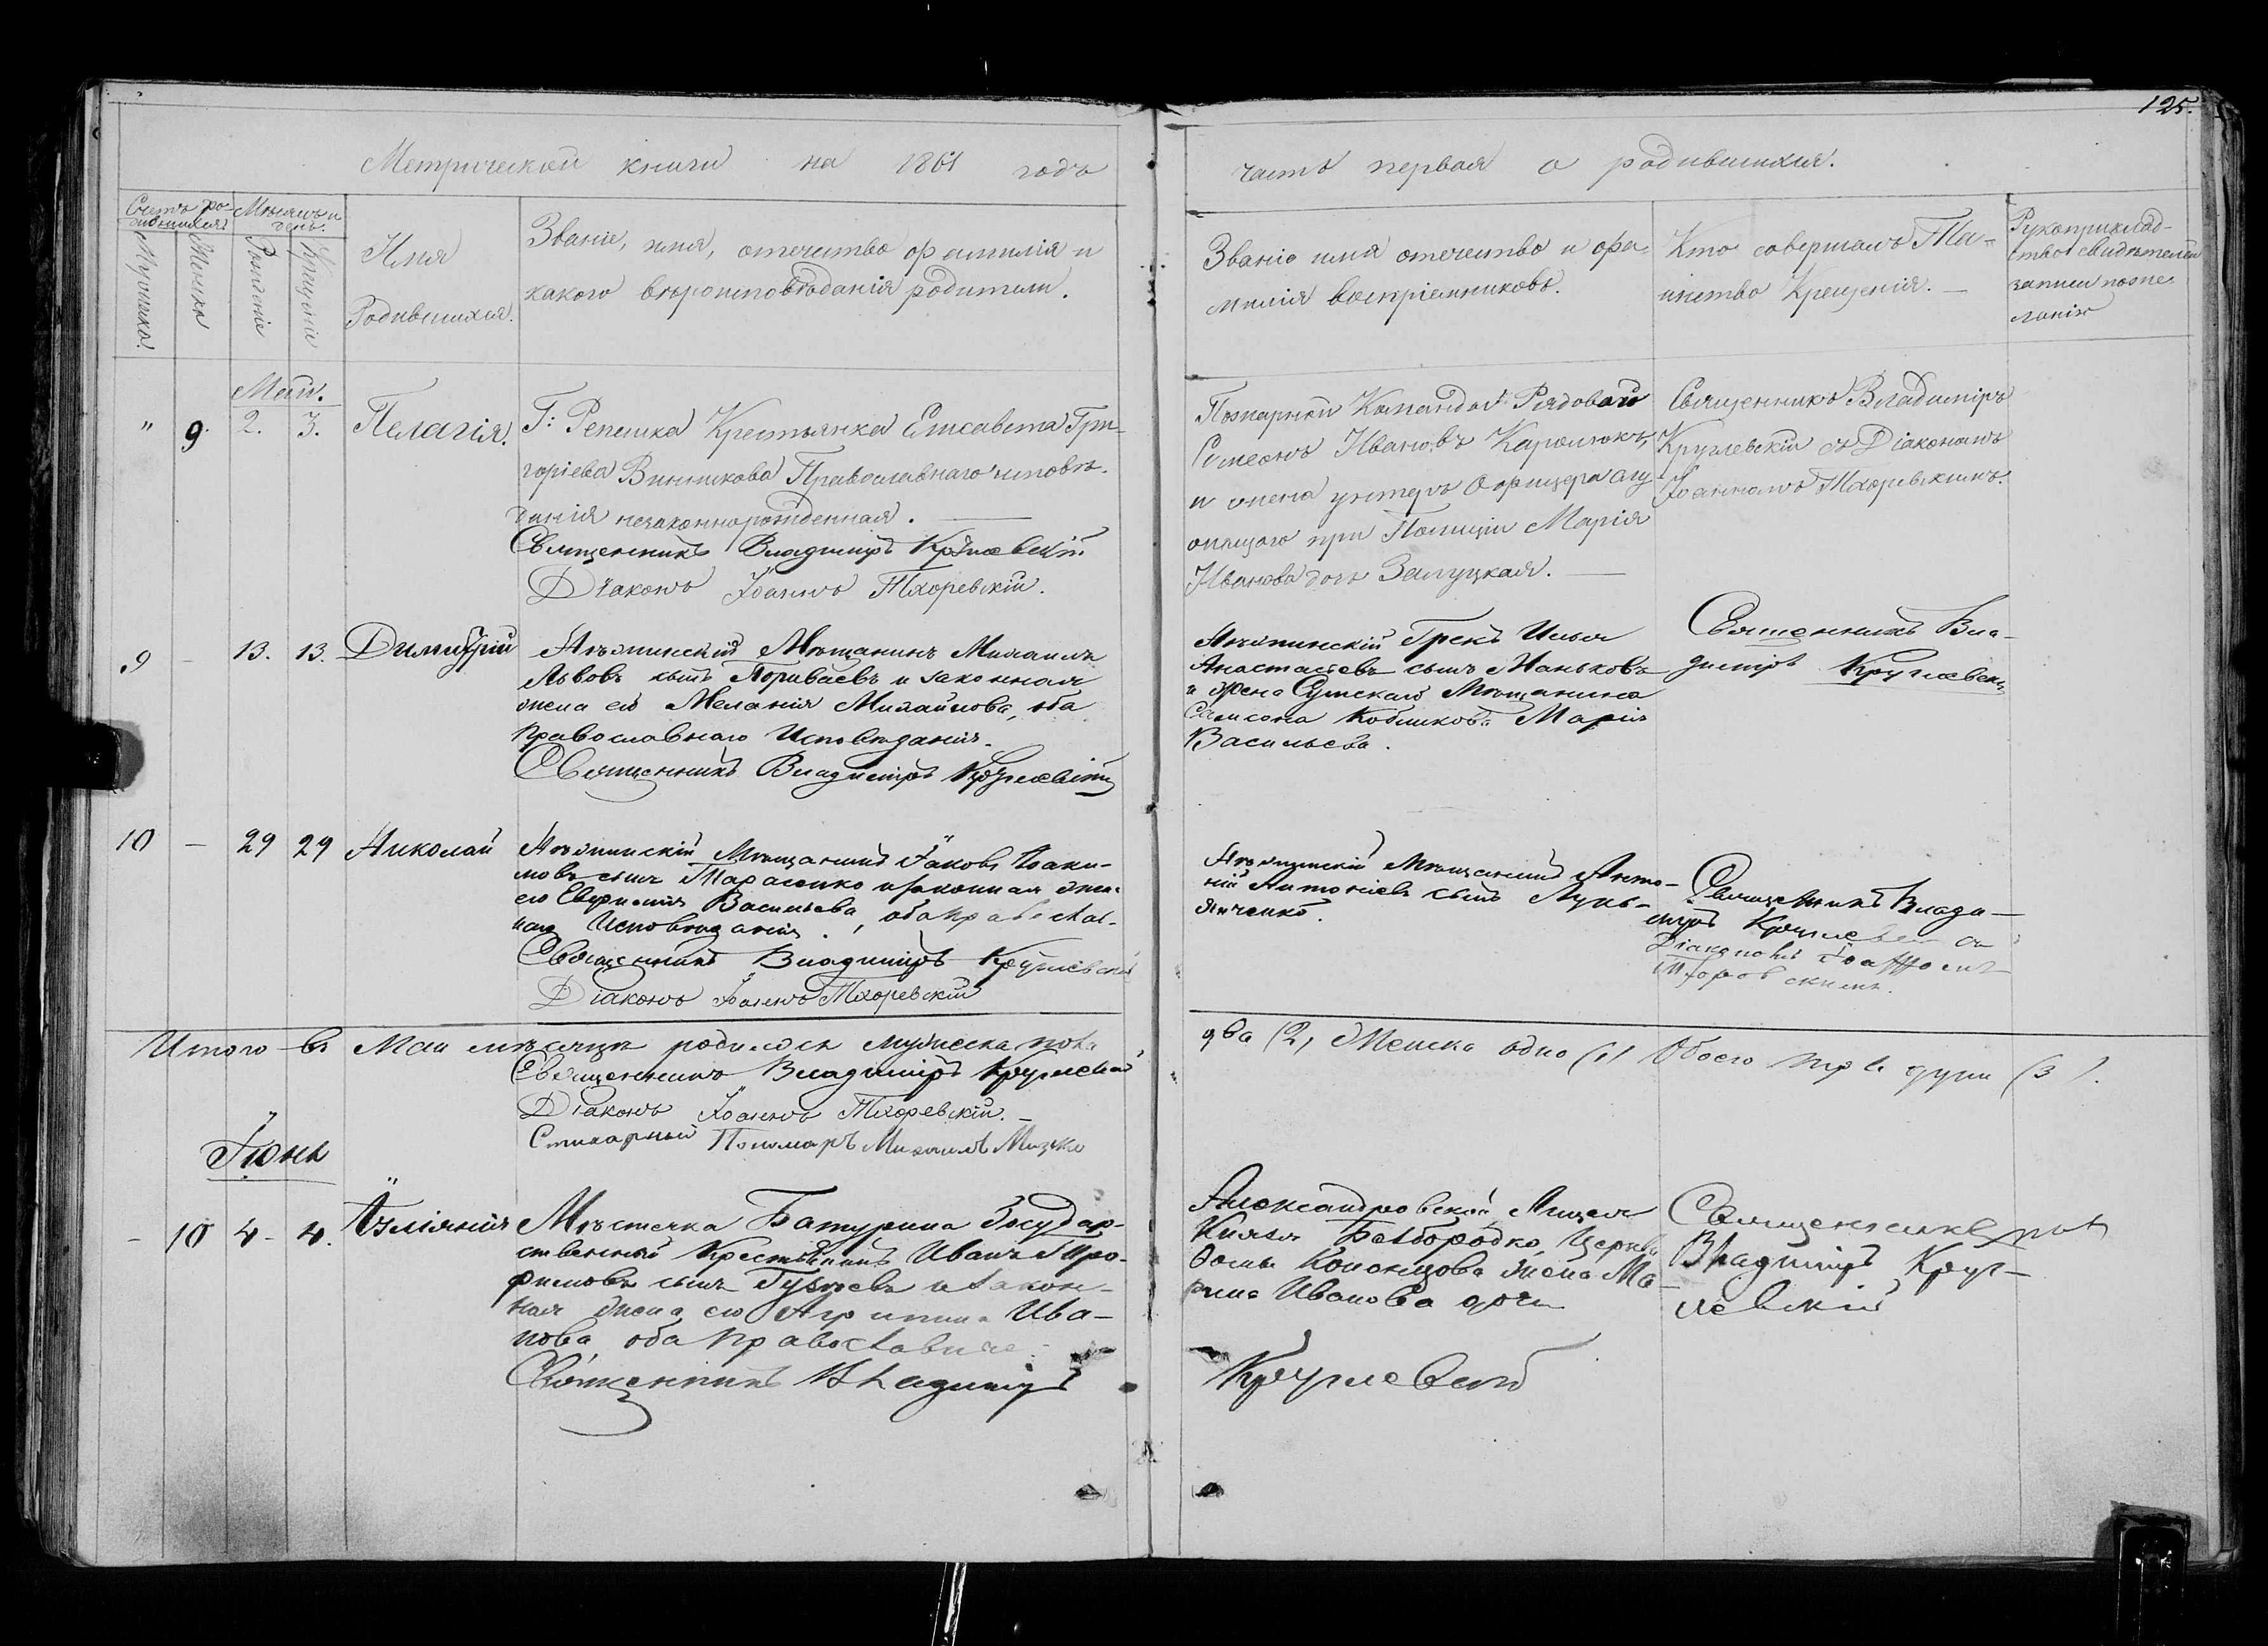 125.
Метрической книги на 1861 годъ
часть первая о родившихся.
Счетъ ро-
дившихся
Мѣсяцъ и
день.
Мужеска
Женска
Рожденія
Крещенія
Имя
Родившихся.
Званіе, имя, отечество фамилія и
какого вѣроисповѣданія родители.
Званіе имя отечество и фа-
милія воспріемниковъ.
Кто совершалъ Та-
инство Крещенія. —
Рукоприклад-
ство свидѣтелей
записи по же-
ланію
Май.
" 9. 2. 3. Пелагія.
Г: Крестьянка Елисавета Гри-
горіева Винникова Православнаго исповѣ-
данія незаконнорожденная. —
Священникъ Владиміръ Круглевскій
Діаконъ Іоаннъ Тхоревскій.
Пожарной Команды Рядоваго
Симеонъ Ивановъ
и жена унтеръ Офицера слу
жащаго при Полиціи Марія
Иванова дочь Залуцкая. —
Священникъ Владиміръ
Круглевскій съ Діакономъ
Іоанномъ Тхоревскимъ.
9 - 13. 13. Димитрій
Нѣжинскій Мѣщанинъ Михаилъ
Львовъ сынъ и законная
жена его Меланія Михайлова, оба
Православнаго Исповѣданія.
Священникъ Владиміръ Круглевскій
Нѣжинскій Грекъ Илья
Анастасіевъ сынъ Маньковъ
и жена Сумскаго Мѣщанина
Самсона Мария
Васильева.
Священникъ Вла-
диміръ Круглевскій
10 - 29 29 Николай
Нѣжинскій Мѣщанинъ Іаковъ Іоаки-
мовъ сынъ Тарасенко и законная жена
его Васильева, оба православ-
наго Исповѣданія.
Священникъ Владиміръ Круглевскій
Діаконъ Іоаннъ Тхоревскій
Нѣжинскій Мѣщанинъ Анто-
ній Антоніевъ сынъ Лукь-
янченко.
Священникъ Влади-
міръ Круглевскій съ
Діакономъ Іоанномъ
Тхоревскимъ.
Итого въ Маи мѣсяцѣ родилось мужеска пола
два (2) Женска одно (1) Обоего три души (3).
Священникъ Владиміръ Круглевскій
Діаконъ Іоаннъ Тхоревскій. -
Стихарный Пономаръ Михаилъ
Іюнь
- 10 4 - 4.
Мѣстечка Батурина Государ-
ственный Крестьянинъ Иванъ Тро-
фимовъ сынъ и закон-
ная жена его Ива-
нова, оба православные.
Священникъ Владиміръ
Александровской, Лицея
Князя Безбородко, Церкви
жена Ма-
Иванова дочь
Круглевскій
Священникъ
Владиміръ Круг-
левскій